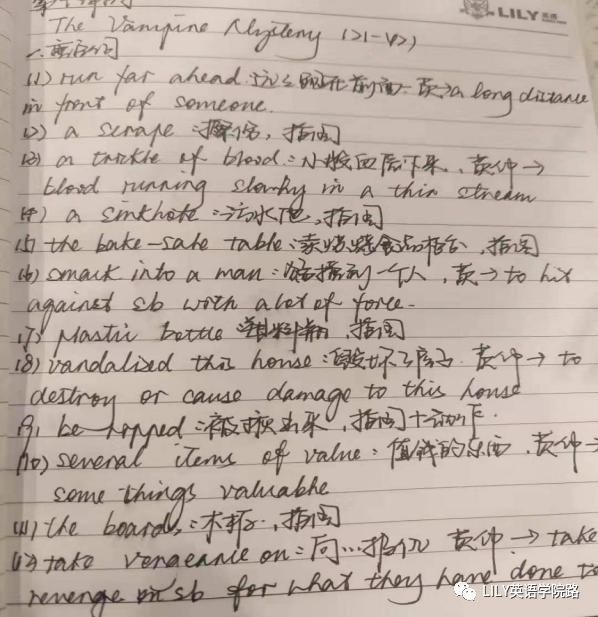 LILY英语
The Vampire Mystery (21-42)
一.重要词
(1) run far ahead:远远跑在前面-英→a long distance
in front of someone.
(2) a scrape:擦伤,指图
(3) a trickle of blood:小股血流下来,英中→
blood running slowly in a thin stream
(4) a sinkhole:污水池,指图
(5) the bake-sale table:,指图
(6) smack into a man:一个人,英→to hit
against sb with a lot of force.
(7) plastic bottle 塑料瓶,指图
(8) vandalised this house:毁坏了房子.英中→to
destroy or cause damage to this house
(9) be hopped:被出来,指图+动作.
(10) several items of value:值钱的东西,英中→
some things valuable
(11) the boards:木板.指图
(12) take vengeance on:向…报仇 英中→take
revenge on sb for what they have done to
LILY英语学院路